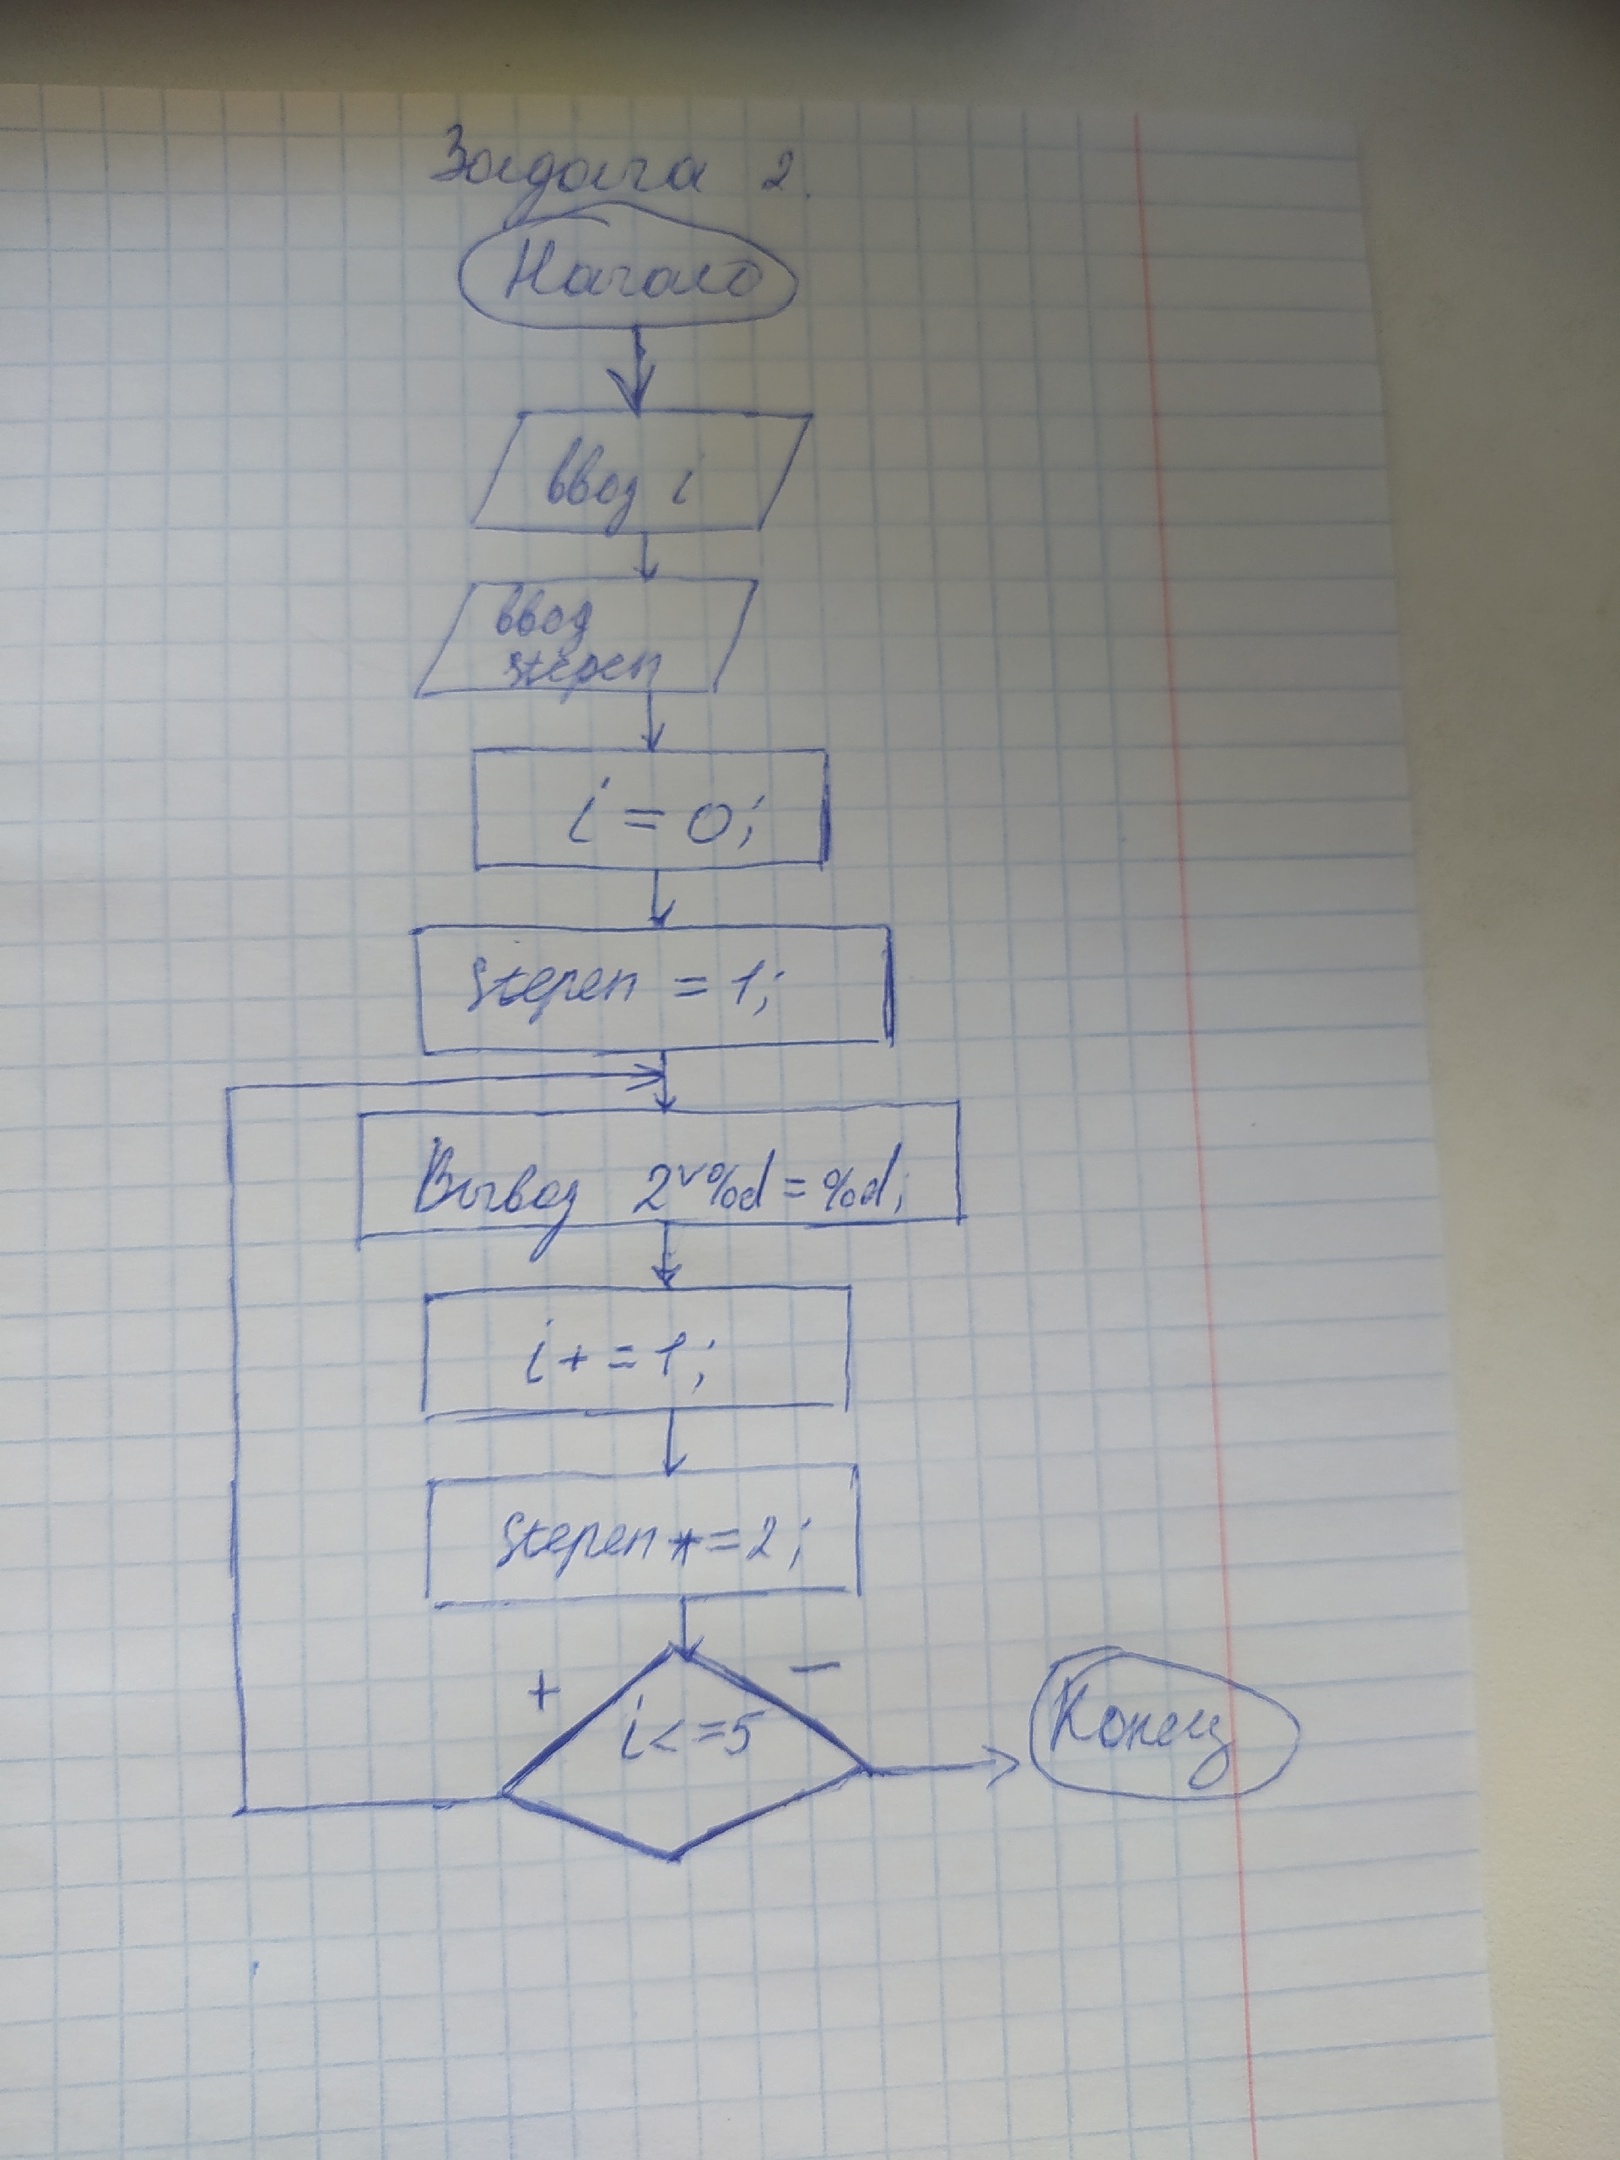 Задача 2.
Начало
ввод i
ввод
stepen
i = 0;
stepen = 1;
Вывод 2^%d = %d;
i + = 1;
stepen * = 2;
+
–
i < = 5
Конец